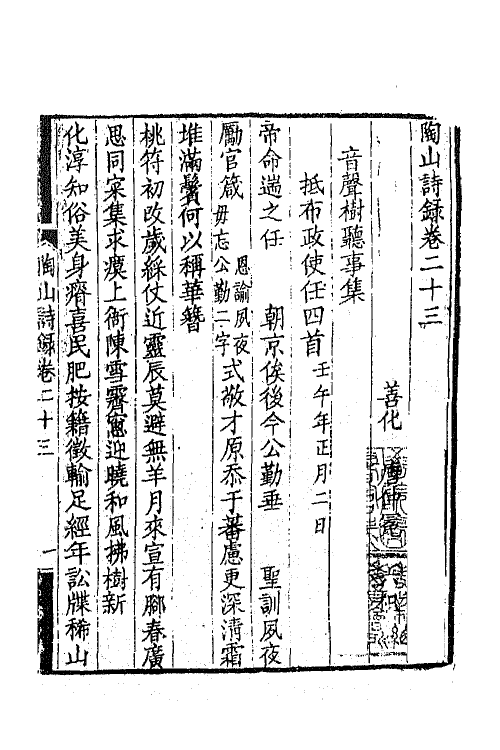 陶山詩録卷二十三
善化
音聲樹聽事集
抵布政使任四首 壬午年正月二日
帝命遄之任 朝京俟後今公勤垂 聖訓夙夜
勵官箴 恩諭夙夜毋忘公勤二字 式敬才原忝于蕃慮更深淸霜
堆滿鬢何以稱華簪
桃符初改歲綵仗近靈辰莫避無羊月來宣有腳春廣
思同寀集求瘼上衙陳雪霽窻迎曉和風拂樹新
化淳知俗美身瘠喜民肥按籍徵輸足經年訟牒稀山
陶山詩録卷二十三 一